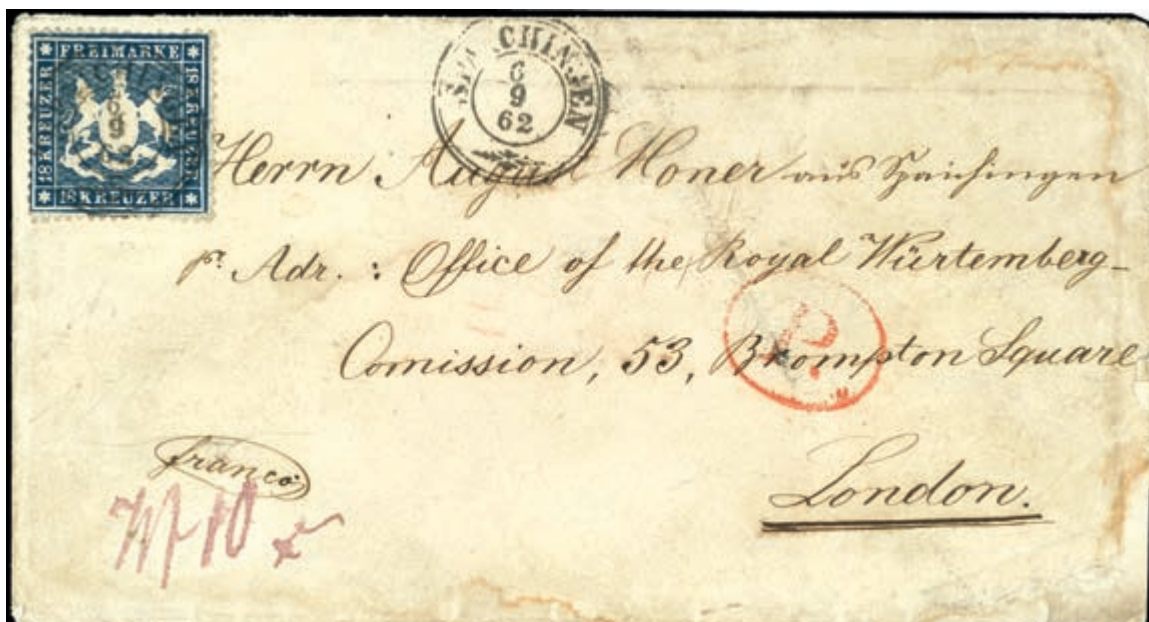 FREIMARKE
18 KREUZER
18 KREUZER
18 KREUZER
6
9
SPAICHINGEN
6
9
62
Herrn August Honer aus Spaichingen
pr. Adr. : Office of the Royal Würtemberg-
Comission, 53, Brompton Square
P.
franco
London.